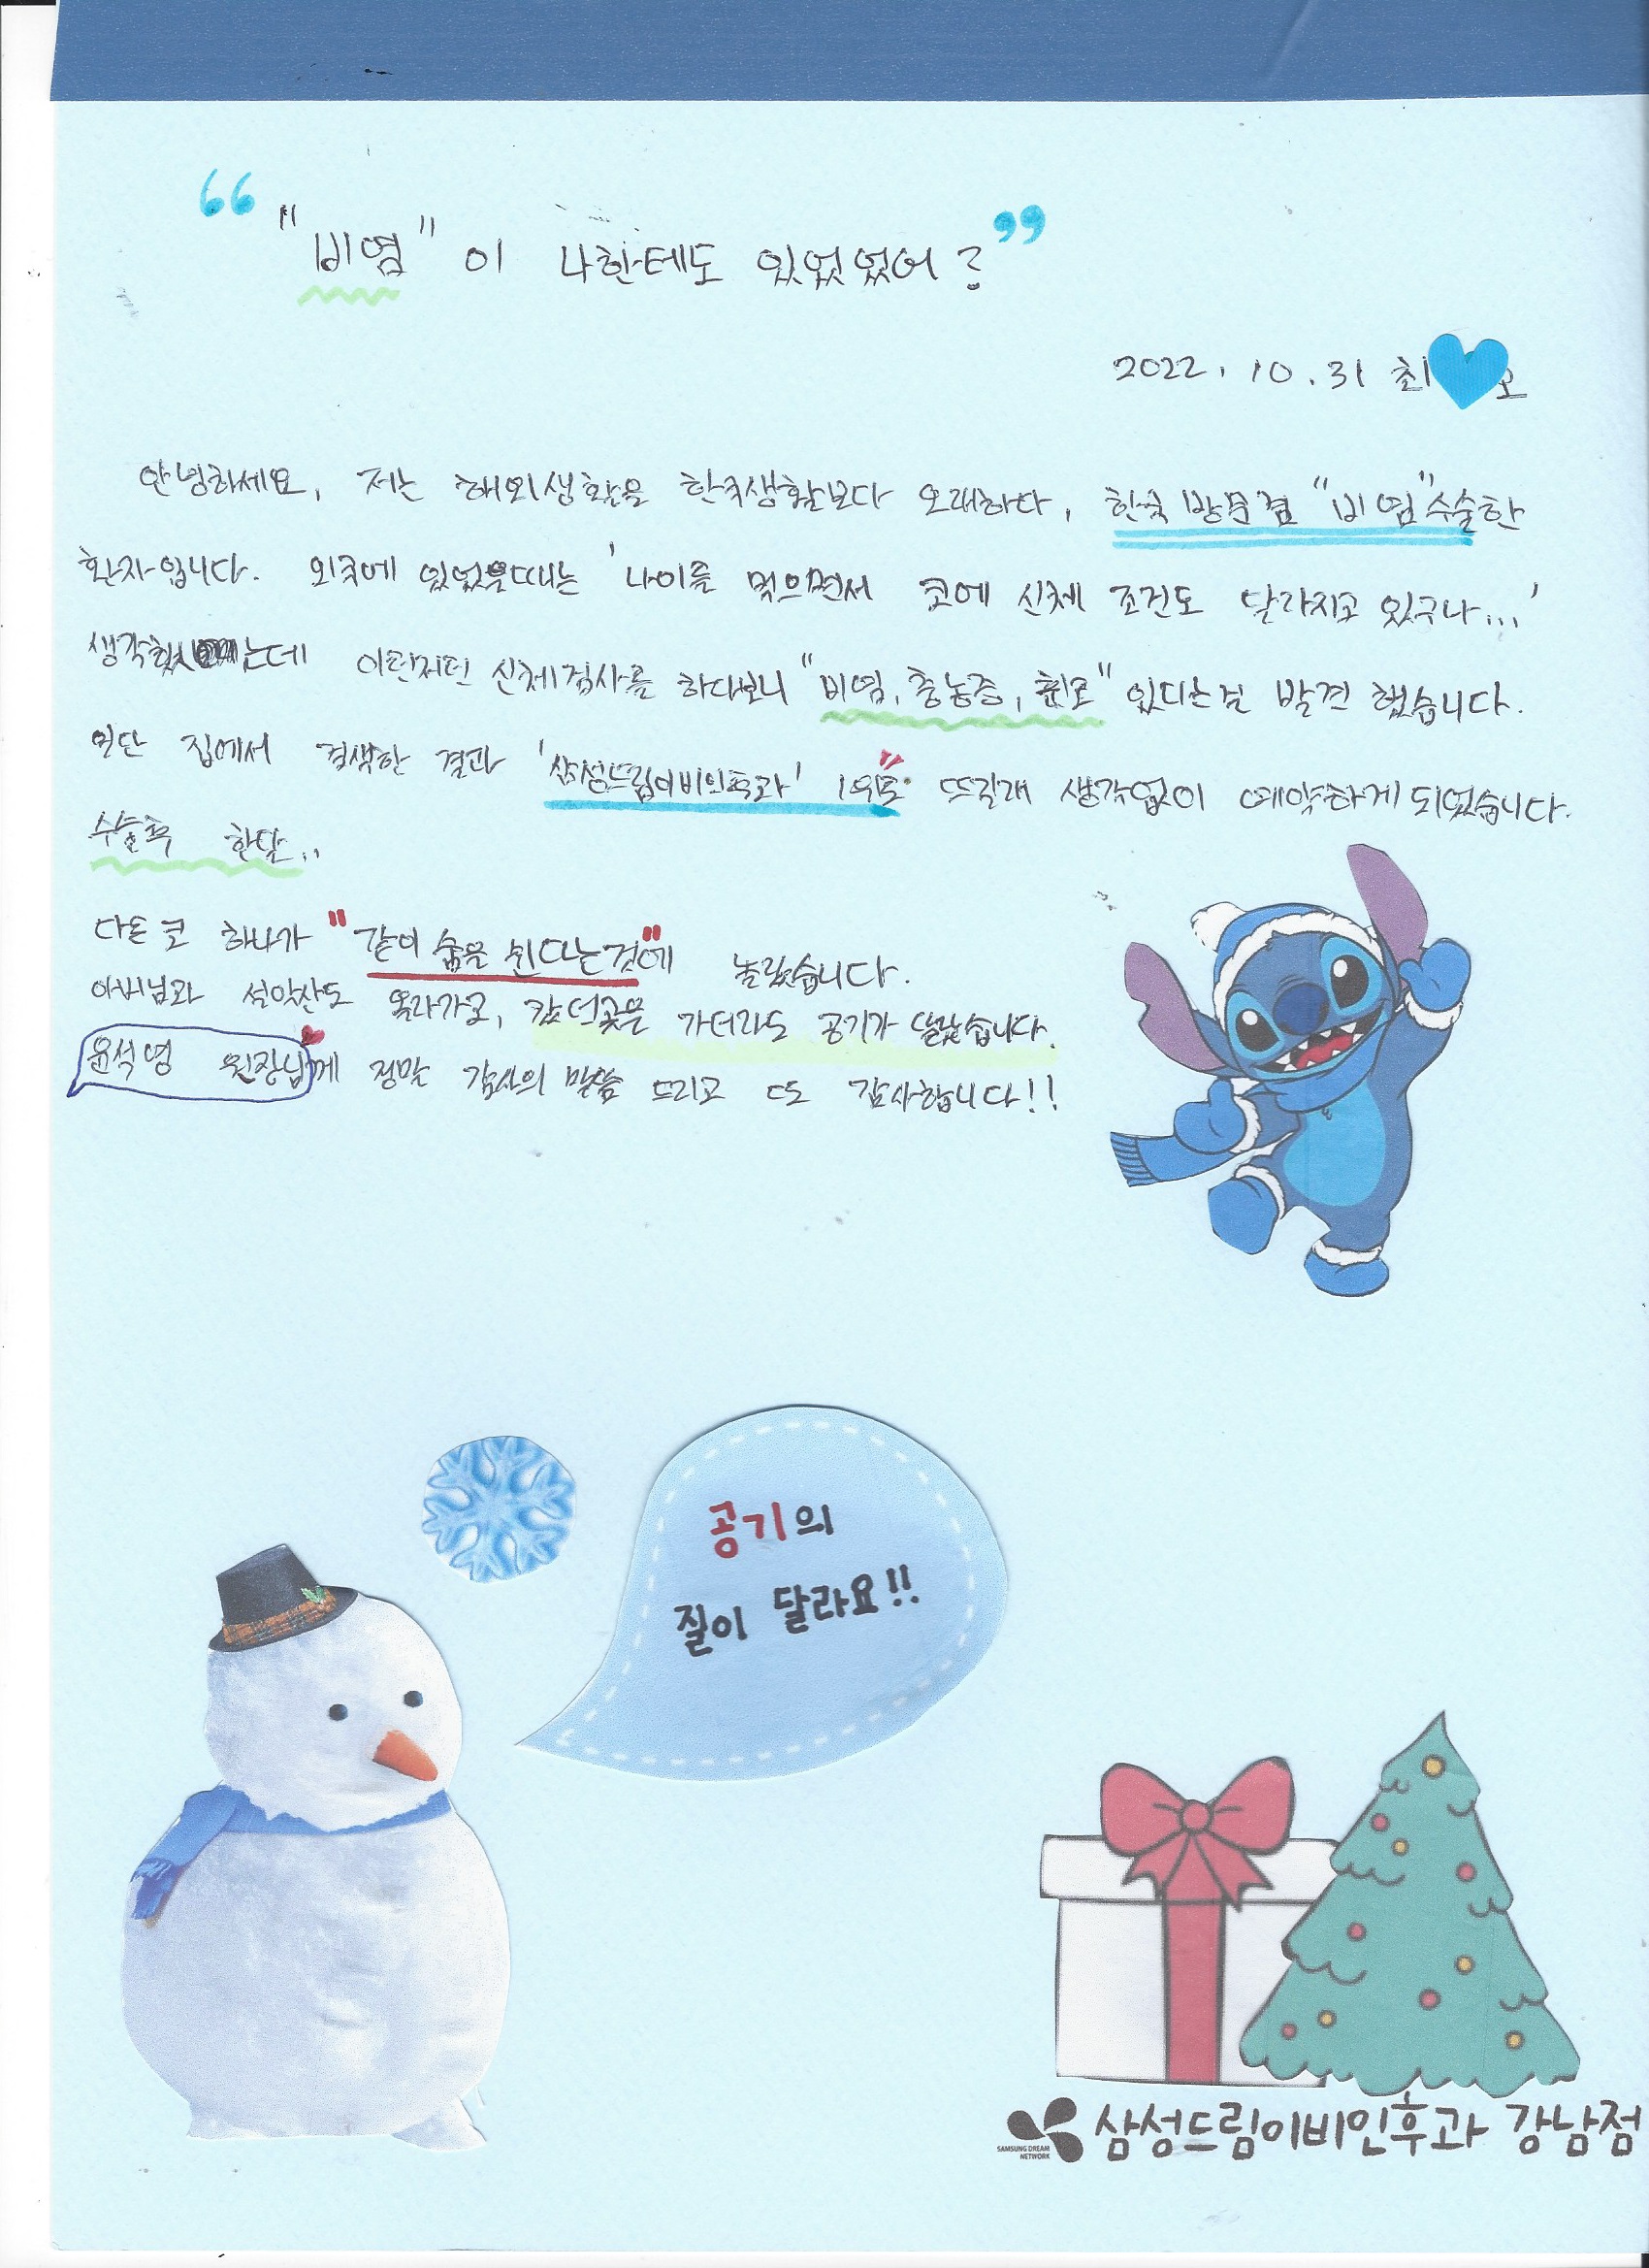 "비염"이 나한테도 있었었어?
2022. 10. 31 최 오
안녕하세요, 저는 해외생활을 한국생활보다 오래하다, 한국 방문겸 "비염"수술한
환자입니다. 외국에 있었을때는 '나이를 먹으면서 코에 신체 조건도 달라지고 있구나...'
생각했는데 이런저런 신체검사를 하다보니 "비염, 충농증, 휜코" 있다는걸 발견 했습니다.
일단 집에서 검색한 결과 '삼성드림이비인후과' 1위로 뜨길래 생각없이 예약하게되었습니다.
수술후 한달..
다른 코 하나가 "같이 숨을 쉰다는것"에 놀랐습니다.
아버님과 설악산도 올라가고, 갔던곳은 가더라도 공기가 달랐습니다.
윤석영 원장님께 정말 감사의 말씀 드리고 또 감사합니다!!
공기의
질이 달라요!!
SAMSUNG DREAM
NETWORK
삼성드림이비인후과 강남점